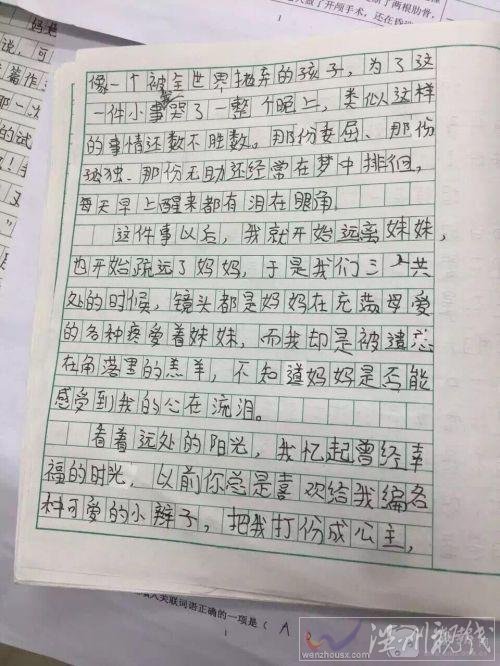 了两根肋骨,
做了开颅手术,还在昏
妈
说,可
篇作
那一次
的试
像一个被全世界抛弃的孩子,为了这
一件小事哭了一整个晚上,类似这样
的事情还数不胜数。那份委屈、那份
孤独、那份无助还经常在梦中排徊,
每天早上醒来都有泪在眼角。
这件事以后,我就开始远离妹妹,
也开始疏远了妈妈,于是我们三人共
处的时候,镜头都是妈妈在充满母爱
的各种疼爱着妹妹,而我却是被遗忘
在角落里的羔羊,不知道妈妈是否能
感受到我的心在流泪。
看着远处的阳光,我忆起曾经幸
福的时光,以前你总是喜欢给我编各
种可爱的小辫子,把我打份成公主,
入关联词语正确的一项是( A
温州视线
wenzhousx.com